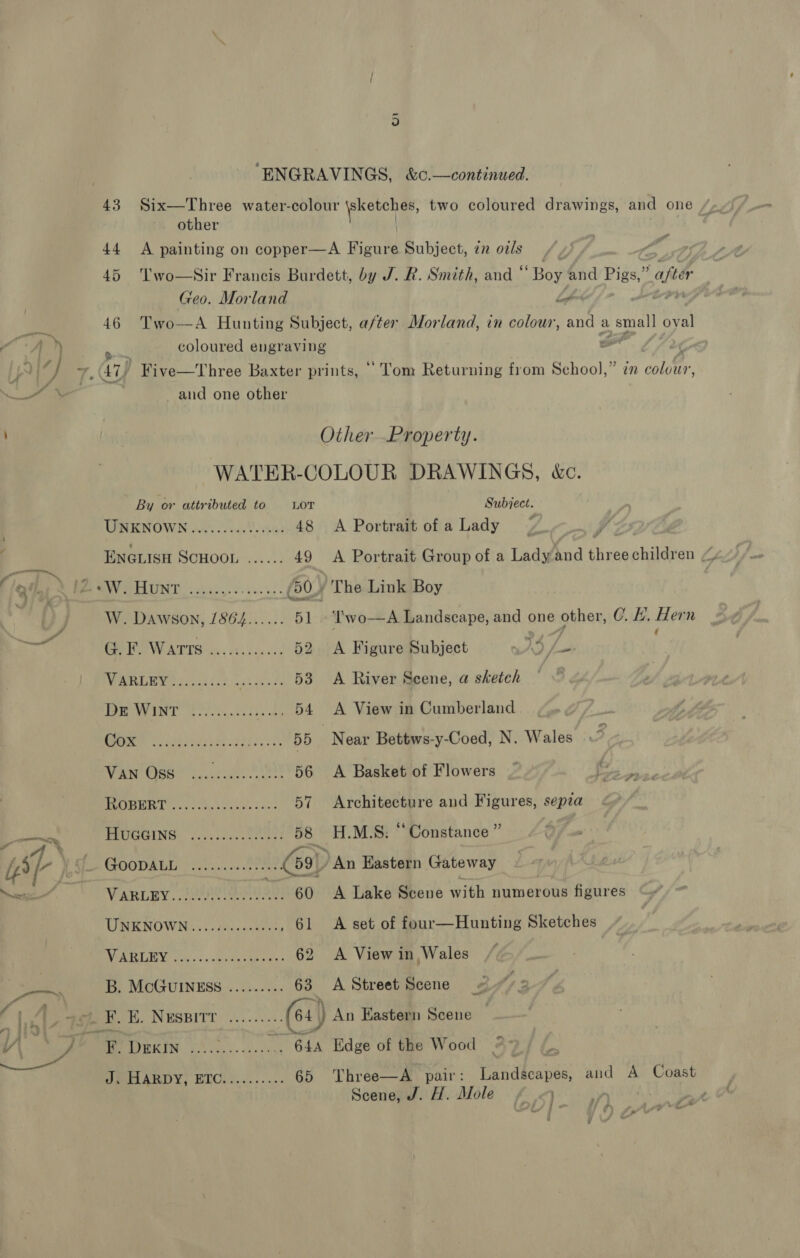 5
ENGRAVINGS, &c.—continued.
43 Six—Three water-colour sketches, two coloured drawings, and one
other
44 A painting on copper—A Figure Subject, in oils
45 Two—Sir Francis Burdett, by J. R. Smith, and “Boy and Pigs,” after
Geo. Morland
46 Two—A Hunting Subject, after Morland, in colour, and a small oval
coloured engraving
47 Five—Three Baxter prints, “Tom Returning from School,” in colour,
and one other
Other Property.
WATER-COLOUR DRAWINGS, &c.
By or attributed to LOT Subject.
UNKNOWN ............... 48 A Portrait of a Lady
ENGLISH SCHOOL ...... 49 A Portrait Group of a Lady and three children
W. HUNT ............... 50 The Link Boy
W. DAWSON, 1864...... 51 Two—A Landscape, and one other, C. E. Hern
G. F. WATTS ............ 52 A Figure Subject
VARLEY .................. 53 A River Scene, a sketch
DE WINT ............... 54 A View in Cumberland
COX ..................... 55 Near Bettws-y-Coed, N. Wales
VAN OSS ............... 56 A Basket of Flowers
ROBERT .................. 57 Architecture and Figures, sepia
HUGGINS ............... 58 H.M.S. “Constance”
GOODALL ............... 59 An Eastern Gateway
VARLEY.................. 60 A Lake Scene with numerous figures
UNKNOWN............... 61 A set of four—Hunting Sketches
VARLEY .................. 62 A View in Wales
B. MCGUINESS ......... 63 A Street Scene
F. E. NESBITT ......... 64 An Eastern Scene
F. DEKIN ............... 64A Edge of the Wood
J. HARDY, ETC.......... 65 Three—A pair: Landscapes, and A Coast
Scene, J. H. Mole